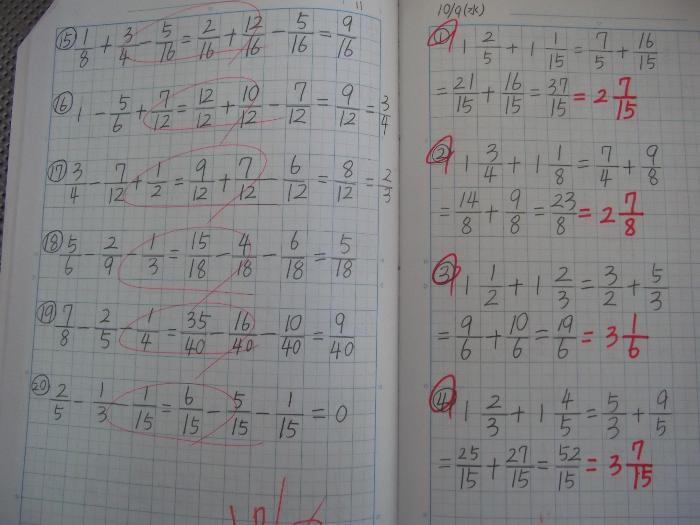 11
⑮ 1/8 + 3/4 - 5/16 = 2/16 + 12/16 - 5/16 = 9/16
⑯ 1 - 5/6 + 7/12 = 12/12 + 10/12 - 7/12 = 9/12 = 3/4
⑰ 3/4 - 7/12 + 1/2 = 9/12 + 7/12 - 6/12 = 8/12 = 2/3
⑱ 5/6 - 2/9 - 1/3 = 15/18 - 4/18 - 6/18 = 5/18
⑲ 7/8 - 2/5 - 1/4 = 35/40 - 16/40 - 10/40 = 9/40
⑳ 2/5 - 1/3 - 1/15 = 6/15 - 5/15 - 1/15 = 0
10/9(水)
① 1 2/5 + 1 1/15 = 7/5 + 16/15
= 21/15 + 16/15 = 37/15 = 2 7/15
② 1 3/4 + 1 1/8 = 7/4 + 9/8
= 14/8 + 9/8 = 23/8 = 2 7/8
③ 1 1/2 + 1 2/3 = 3/2 + 5/3
= 9/6 + 10/6 = 19/6 = 3 1/6
④ 1 2/3 + 1 4/5 = 5/3 + 9/5
= 25/15 + 27/15 = 52/15 = 3 7/15